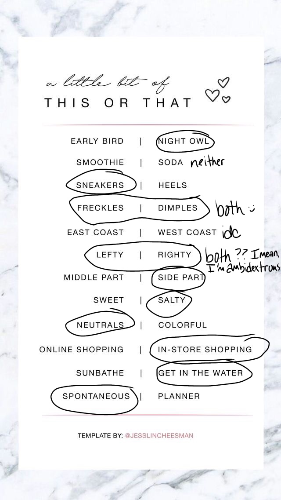 a little bit of
THIS OR THAT
EARLY BIRD | NIGHT OWL
SMOOTHIE | SODA neither
SNEAKERS | HEELS
FRECKLES | DIMPLES both :)
EAST COAST | WEST COAST idc
LEFTY | RIGHTY both ?? I mean,
I'm ambidextrous
MIDDLE PART | SIDE PART
SWEET | SALTY
NEUTRALS | COLORFUL
ONLINE SHOPPING | IN-STORE SHOPPING
SUNBATHE | GET IN THE WATER
SPONTANEOUS | PLANNER
TEMPLATE BY: @JESSLINCHEESMAN